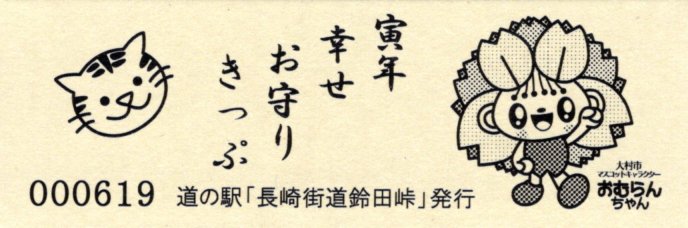 寅年
幸せ
お守り
きっぷ
000619 道の駅「長崎街道鈴田峠」発行
大村市
マスコットキャラクター
おむらん
ちゃん